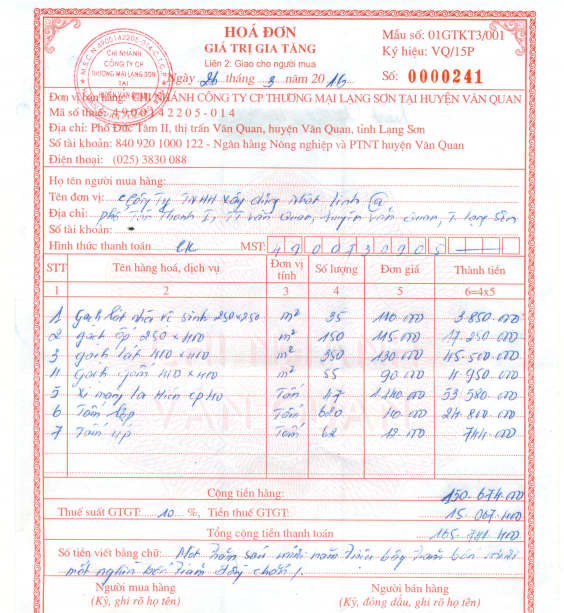 HOÁ ĐƠN
GIÁ TRỊ GIA TĂNG
Liên 2: Giao cho người mua
Ngày 26 tháng 3 năm 2016
Mẫu số: 01GTKT3/001
Ký hiệu: VQ/15P
Số: 0000241
M.S.C.N:4900142205-014-C.T.C.P
CHI NHÁNH
CÔNG TY CP
THƯƠNG MẠI LẠNG SƠN
TẠI
HUYỆN VĂN QUAN
Đơn vị bán hàng: CHI NHÁNH CÔNG TY CP THƯƠNG MẠI LẠNG SƠN TẠI HUYỆN VĂN QUAN
Mã số thuế: 4900142205-014
Địa chỉ: Phố Đức Tâm II, thị trấn Văn Quan, huyện Văn Quan, tỉnh Lạng Sơn
Số tài khoản: 840 920 1000 122 - Ngân hàng Nông nghiệp và PTNT huyện Văn Quan
Điện thoại: (025) 3830 088
Họ tên người mua hàng:
Tên đơn vị: Công Ty TNHH Xây dựng Nhật Linh
Địa chỉ: phố Tân Thanh I, TT Văn Quan, huyện Văn Quan, T. Lạng Sơn
Số tài khoản:
Hình thức thanh toán CK MST: 4900730905
STT Tên hàng hoá, dịch vụ Đơn vị tính Số lượng Đơn giá Thành tiền
1 2 3 4 5 6=4x5
1 Gạch lát vệ sinh 250x250 m² 35 110.000 3.850.000
2 gạch ốp 250x400 m² 150 115.000 17.250.000
3 gạch lát 400x400 m² 350 130.000 45.500.000
4 Gạch gốm 400x400 m² 55 90.000 4.950.000
5 Xi măng La Hiên 47 1.140.000 53.580.000
6 Tấm lợp Tấm 620 40.000 24.800.000
7 Tấm úp Tấm 62 12.000 744.000
Cộng tiền hàng: 150.674.000
Thuế suất GTGT: 10 %, Tiền thuế GTGT: 15.067.400
Tổng cộng tiền thanh toán 165.741.400
Số tiền viết bằng chữ: Một trăm sáu mươi năm triệu bảy trăm bốn mươi
một nghìn bốn trăm đồng chẵn /.
Người mua hàng Người bán hàng
(Ký, ghi rõ họ tên) (Ký, đóng dấu, ghi rõ họ tên)